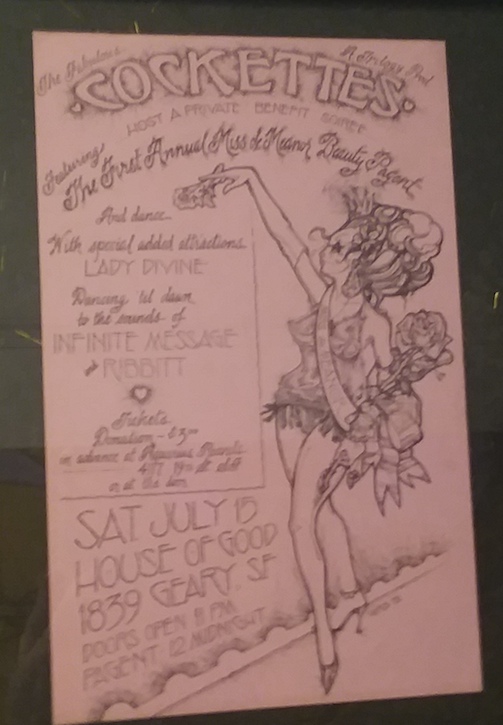 The Fabulous
COCKETTES
HOST A PRIVATE BENEFIT SOIREE
Featuring
The First Annual Miss de Meanor Beauty Pagent
And dance
With special added attractions
LADY DIVINE
Dancing 'til dawn
to the sounds of
INFINITE MESSAGE
& RIBBITT
Tickets
Donation - $3.00
in advance at Aquarius Records
19th st
or at the door
SAT JULY 15
HOUSE OF GOOD
1839 GEARY, SF
DOORS OPEN 11 PM
PAGENT 12 MIDNIGHT